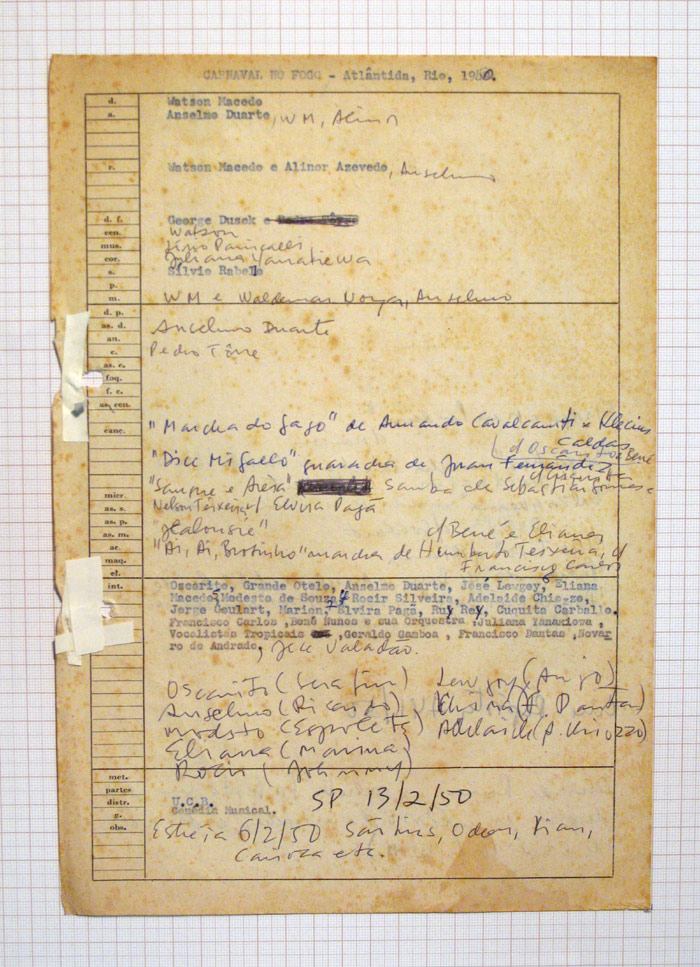 CARNAVAL NO FOGO - Atlântida, Rio, 1950.
d. Watson Macedo
a. Anselmo Duarte, WM, Alinor
r. Watson Macedo e Alinor Azevedo, Anselmo
d. f. George Dusek e
cen. Watson
mus. Lirio Panicalli
cor. Juliana Yanakiewa
s. Silvio Rabello
p.
m. WM e Waldemar Noya, Anselmo
d. p.
as. d. Anselmo Duarte
an.
c. Pedro Tôrre
as. c.
foq.
f. c.
as. cen.
canc. "Marcha do Gago" de Armando Cavalcanti e Klecius
Caldas
d/ Oscarito e Bené
"Dice Mi Gallo" guaracha de Juan Fernandez
"Sangue e Areia" samba de Sebastião Gomes e
micr.
as. s. Nelson Teixeira c/ Elvira Pagã
as. p.
as. m. "Jealousie" c/ Bené e Eliana
ac. "Ai, Ai, Brotinho" marcha de Humberto Teixeira, c/
maq. Francisco Carlos
el.
int. Oscarito, Grande Otelo, Anselmo Duarte, José Lewgoy, Eliana
Macedo, Modesto de Souza, Rocir Silveira, Adelaide Chiozzo,
Jorge Goulart, Marion, Elvira Pagã, Ruy Rey, Cuquita Carballo.
Francisco Carlos ,Bené Nunes e sua Orquestra ,Juliana Yanakiewa ,
Vocalistas Tropicais ,Geraldo Gamboa , Francisco Dantas ,Navar
ro de Andrade, Jece Valadão.
Oscarito (Serafim) Lewgoy (Anjo)
Anselmo (Ricardo) (F. Dantas)
Modesto (Espoleta) Adelaide (A. Chiozzo)
Eliana (Marina)
Rocir (Johnny)
met.
partes
distr. U.C.B. SP 13/2/50
g. Comédia Musical.
obs. Estreia 6/2/50 São Luiz, Odeon, Rian,
Carioca etc.